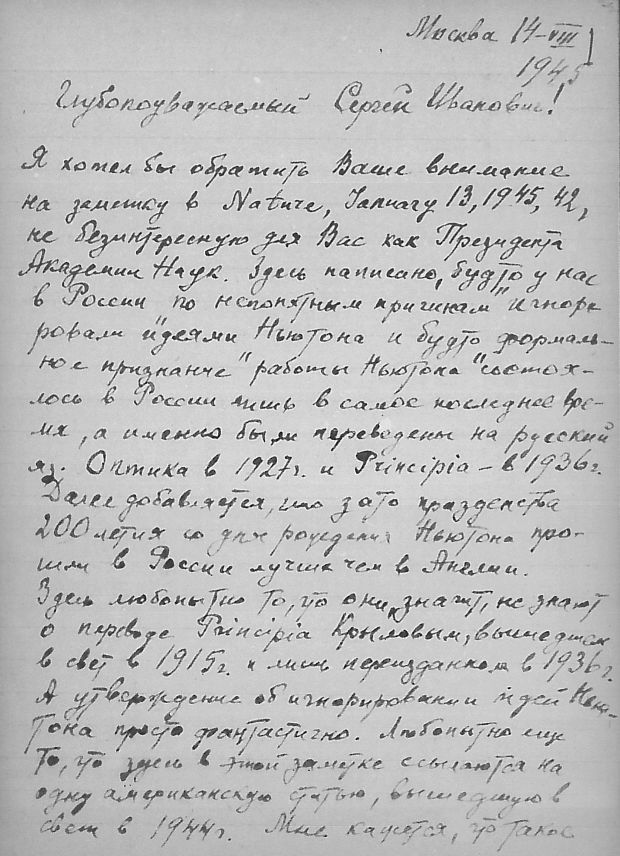 Москва 14-VIII
1945
Глубокоуважаемый Сергей Иванович!
Я хотел бы обратить Ваше внимание
на заметку в Nature, January 13, 1945, 42,
не безинтересную для Вас как Президента
Академии Наук. Здесь написано, будто у нас
в России по непонятным причинам "игнори-
ровали" идеями Ньютона и будто "формаль-
ное признание" работы Ньютона "состоя-
лось в России лишь в самое последнее вре-
мя, а именно были переведены на русский
яз. Оптика в 1927г. и Principia – в 1936г.
Далее добавляется, что зато празденства
200 летия со дня рождения Ньютона про-
шли в России лучше чем в Англии.
Здесь любопытно то, что они, значит, не знают
о переводе Principia Крыловым, вышедшем
в свет в 1915г. и лишь переизданном в 1936г.
А утверждение об игнорировании идей Нью-
тона просто фантастично. Любопытно еще
то, что здесь в этой заметке ссылаются на
одну американскую статью, вышедшую в
свет в 1944г. Мне кажется, что такое